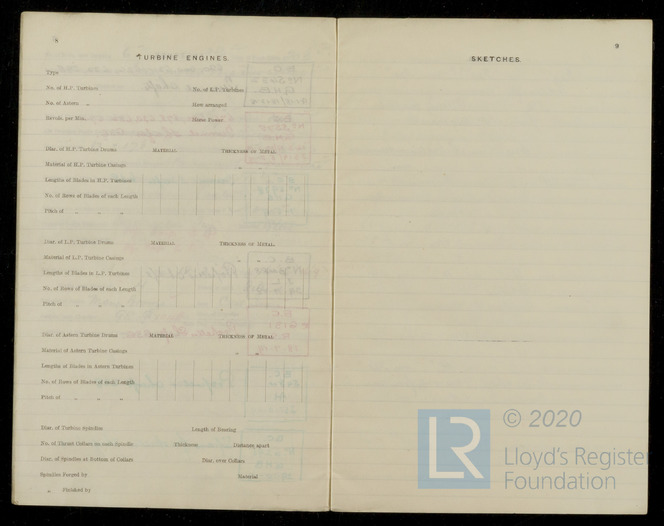 8
TURBINE ENGINES.
Type
No. of H.P. Turbines No. of L.P. Turbines
No. of Astern „ How arranged
Revols. per Min. Horse Power
Diar. of H.P. Turbine Drums MATERIAL THICKNESS OF METAL
Material of H.P. Turbine Casings „ „
Lengths of Blades in H.P. Turbines
No. of Rows of Blades of each Length
Pitch of „ „ „
Diar. of L.P. Turbine Drums MATERIAL THICKNESS OF METAL
Material of L.P. Turbine Casings „ „
Lengths of Blades in L.P. Turbines
No. of Rows of Blades of each Length
Pitch of „ „ „
Diar. of Astern Turbine Drums MATERIAL THICKNESS OF METAL
Material of Astern Turbine Casings „ „
Lengths of Blades in Astern Turbines
No. of Rows of Blades of each Length
Pitch of „ „ „
Diar. of Turbine Spindles Length of Bearing
No. of Thrust Collars on each Spindle Thickness Distance apart
Diar. of Spindles at Bottom of Collars Diar. over Collars
Spindles Forged by Material
„ Finished by
9
SKETCHES.
LR
© 2020
Lloyd's Register
Foundation